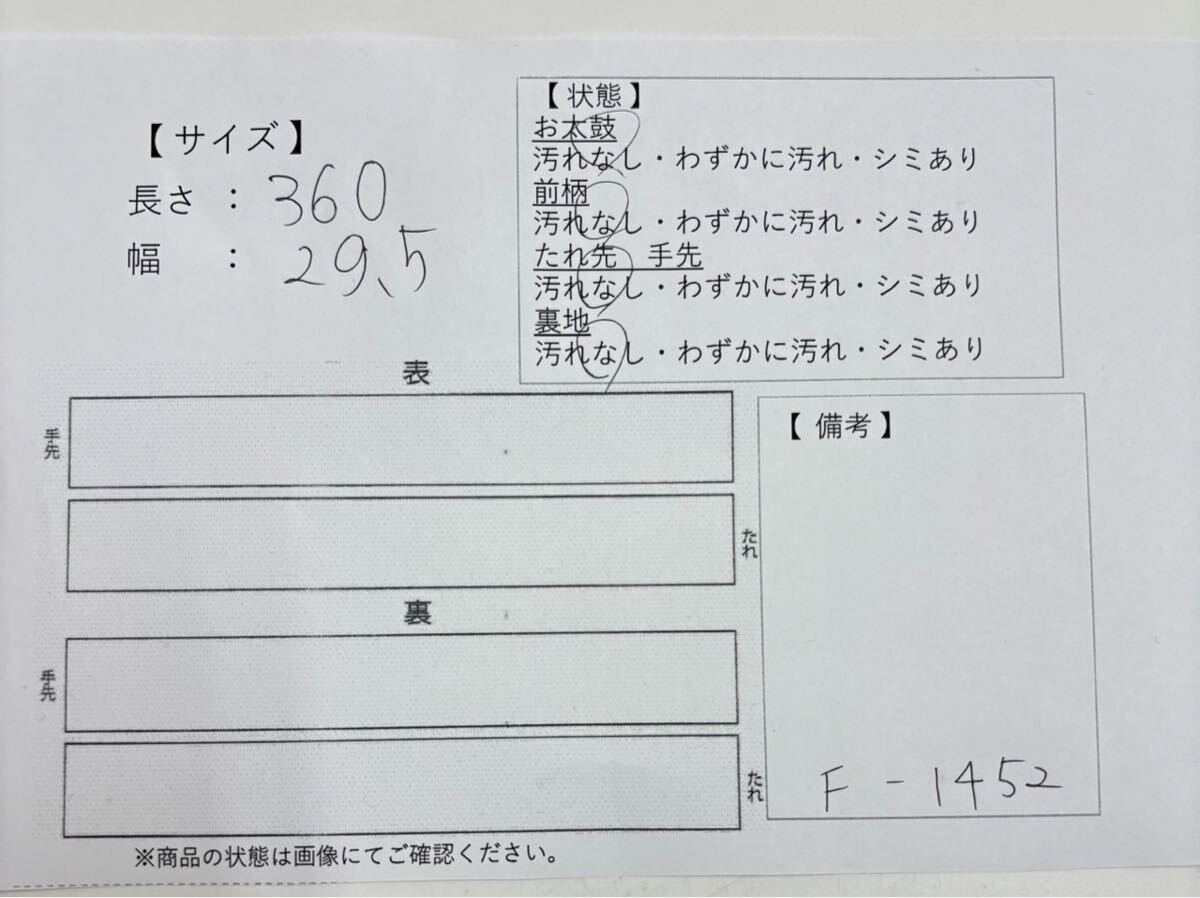 【 サイズ 】
長さ ： 360
幅 ： 29.5
【 状態 】
お太鼓
汚れなし・わずかに汚れ・シミあり
前柄
汚れなし・わずかに汚れ・シミあり
たれ先 手先
汚れなし・わずかに汚れ・シミあり
裏地
汚れなし・わずかに汚れ・シミあり
表
手先
たれ
裏
手先
たれ
【 備考 】
F - 1452
※商品の状態は画像にてご確認ください。